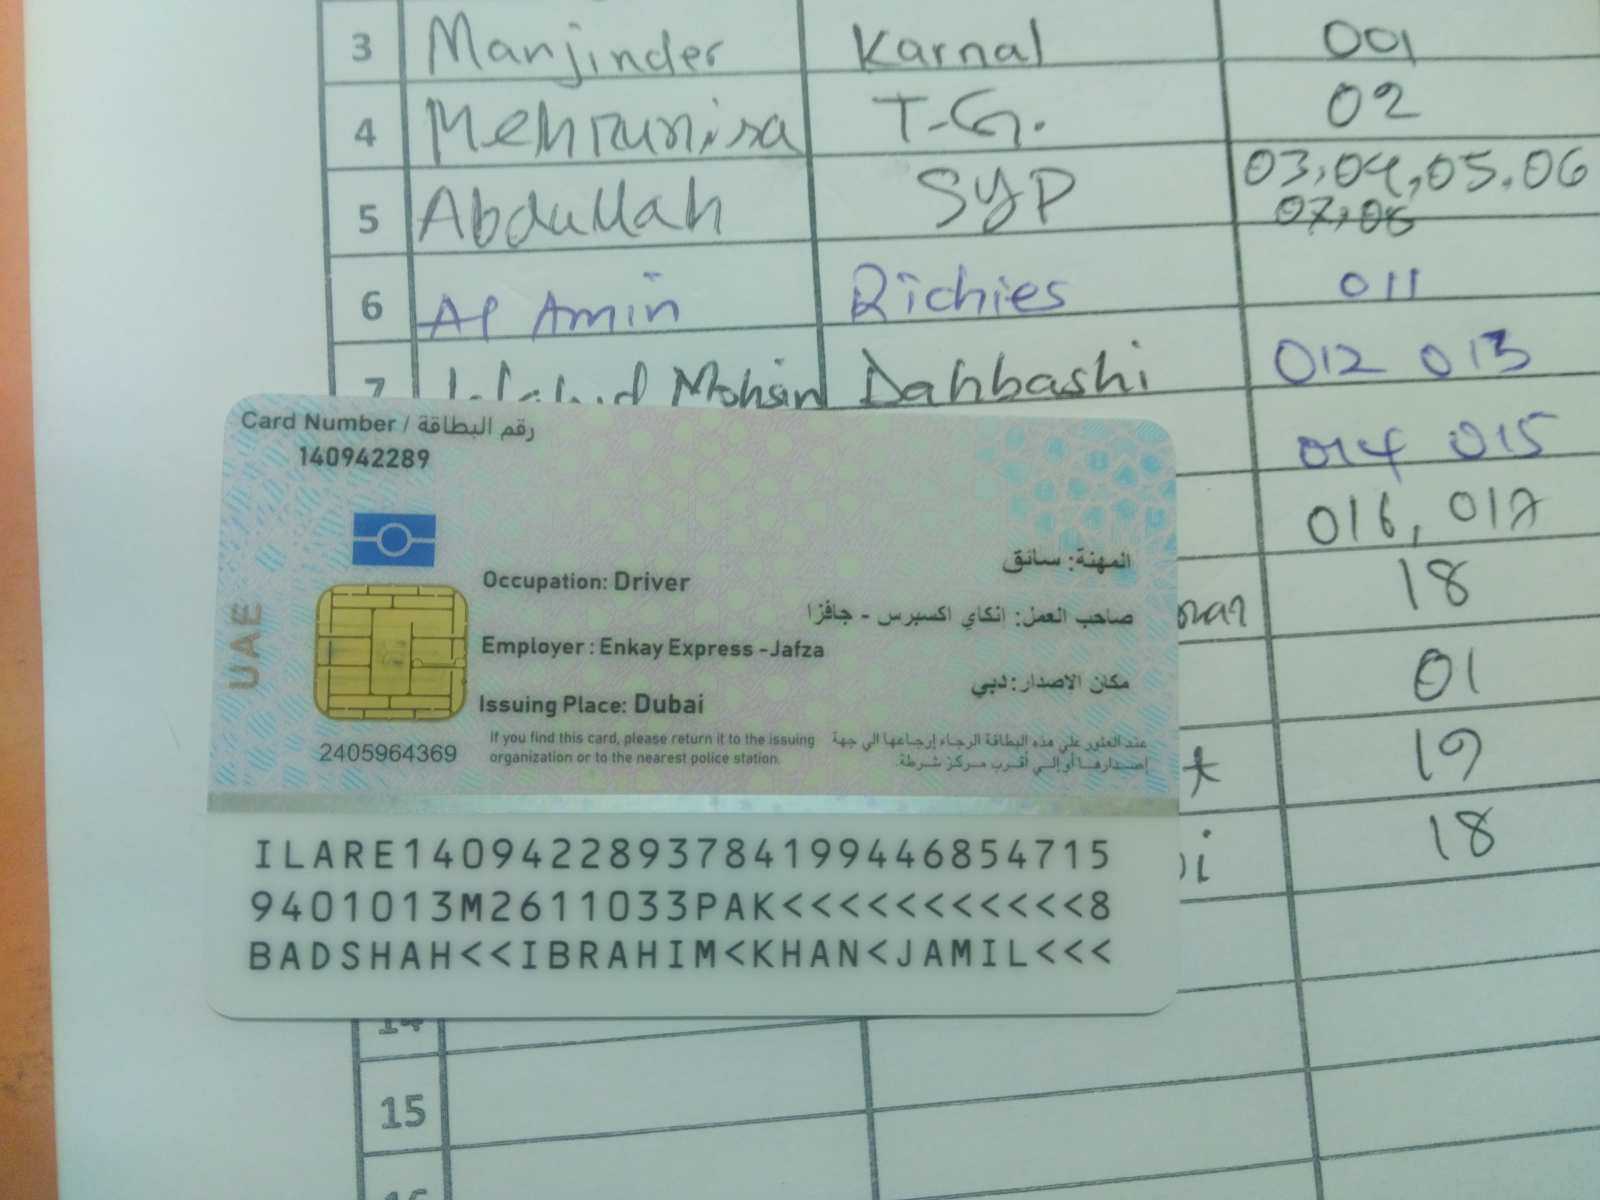 3 Manjinder Karnal 001
4 Mehrunisa T-G. 02
5 Abdullah SYP 03,04,05.06
07,08
6 Al Amin Richies 011
7 Mohsin Dahbashi 012 013
Card Number / رقم البطاقة
140942289
014 015
016, 017
المهنة: سائق
Occupation: Driver
18
صاحب العمل: انكاي اكسبرس - جافزا
Employer : Enkay Express -Jafza
UAE
مكان الاصدار: دبي
Issuing Place: Dubai
01
2405964369
If you find this card, please return it to the issuing
organization or to the nearest police station.
عند العثور على هذه البطاقة الرجاء إرجاعها الي جهة
إصدارها أو إلي أقرب مركز شرطة.
19
18
ILARE1409422893784199446854715
9401013M2611033PAK<<<<<<<<<<<8
BADSHAH<<IBRAHIM<KHAN<JAMIL<<<
14
15
16